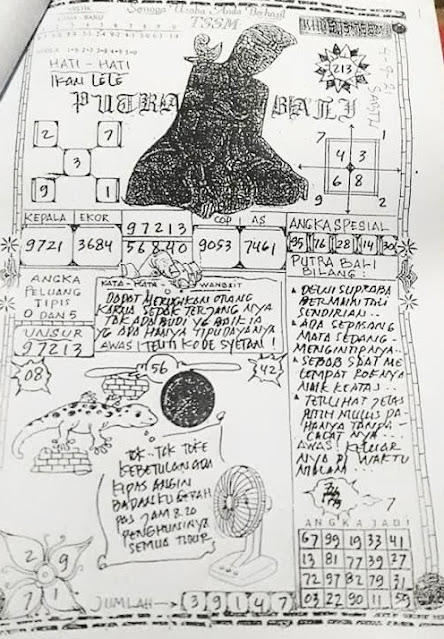 Semoga Usaha Anda Berhasil
TSSM
HATI - HATI
IKAN LELE
PUTRA BALI
213
SABTU
2 7
3
9 1
7 1
4 3
6 8
9 2
KEPALA EKOR
9721 3684
97213
56840
COP AS
9053 7461
ANGKA SPESIAL
95 76 28 14 30
ANGKA
PELUANG
TIPIS
0 DAN 5
UNSUR
97213
KATA - KATA WANGSIT
DAPAT MERUGIKAN ORANG
KARNA SEPAK TERJANG NYA
TAK ADA BUDI YG BAIK IA
YG ADA HANYA TIPU DAYANYA
AWAS! TELITI KODE SYETAN!
PUTRA BALI
BILANG:
DEWI SUPRABA
BERMAIN TALI
SENDIRIAN..
ADA SEPASANG
MATA SEDANG -
MENGINTIPNYA..
SEBAB SAAT ME
LOMPAT ROKNYA
NAIK KEATAS..
TERLIHAT JELAS
PUTIH MULUS PA
HANYA TANPA -
CACAT NYA..
AWAS! KELUAR
NYA DI WAKTU
MALAM...
08
56
42
TOK.. TOK TOKE
KEBETULAN ADA
KIPAS ANGIN
BADANKU GERAH
PAS JAM 8.20
PENGHUNINYA
SEMUA TIDUR
7
ANGKA JADI
67 99 19 33 41
13 81 77 39 27
72 97 82 79 31
03 22 30 11 59
2 9
7 1
JUMLAH → 3 9 1 4 7